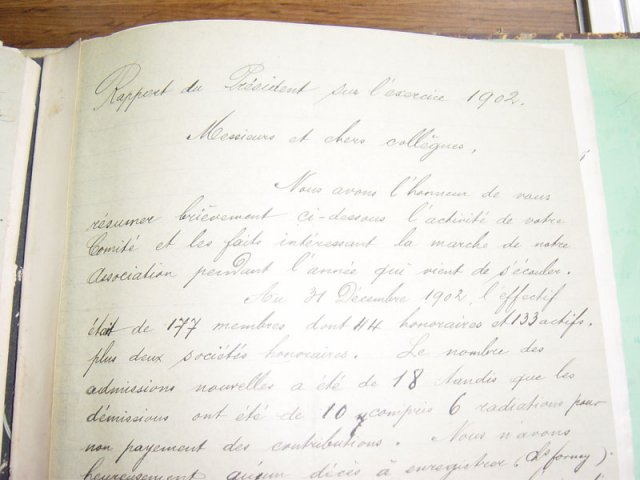 Rapport du Président sur l'exercice 1902.
Messieurs et chers collègues,
Nous avons l'honneur de vous
résumer brièvement ci-dessous l'activité de votre
Comité et les faits intéressant la marche de notre
Association pendant l'année qui vient de s'écouler.
Au 31 Décembre 1902, l'éffectif
était de 177 membres dont 44 honoraires et 133 actifs,
plus deux sociétés honoraires. Le nombre des
admissions nouvelles a été de 18 tandis que les
démissions ont été de 10 y compris 6 radiations pour
non payement des contributions. Nous n'avons
heureusement aucun décès à enregistrer